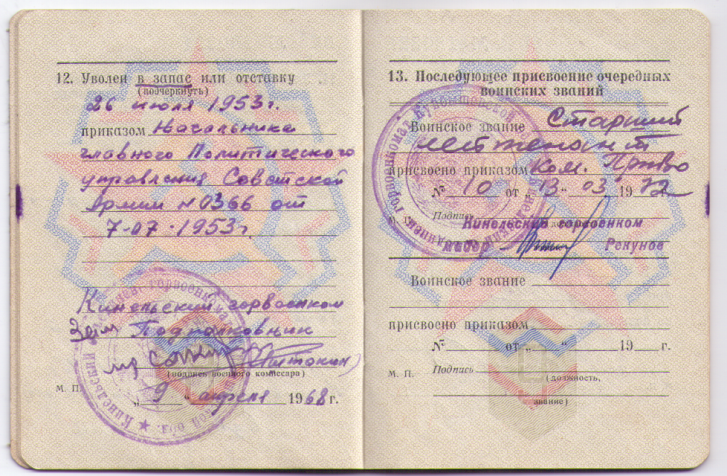 12. Уволен в запас или отставку
(подчеркнуть)
26 июля 1953г.
приказом Начальника
главного Политического
управления Советской
Армии №0366 от
7-07-1953г.
Кинельский горвоенком
Подполковник
(подпись военного комиссара)
М. П.
„9“ апреля 1968г.
13. Последующее присвоение очередных
воинских званий
Воинское звание Старший
лейтенант
присвоено приказом Ком. ПриВО
№ 10 от „13“ 03 1972
Подпись
Кинельский горвоенком
майор Рекунов
Воинское звание
присвоено приказом
№ от „ “ 19 г.
М. П. Подпись
(должность,
звание)